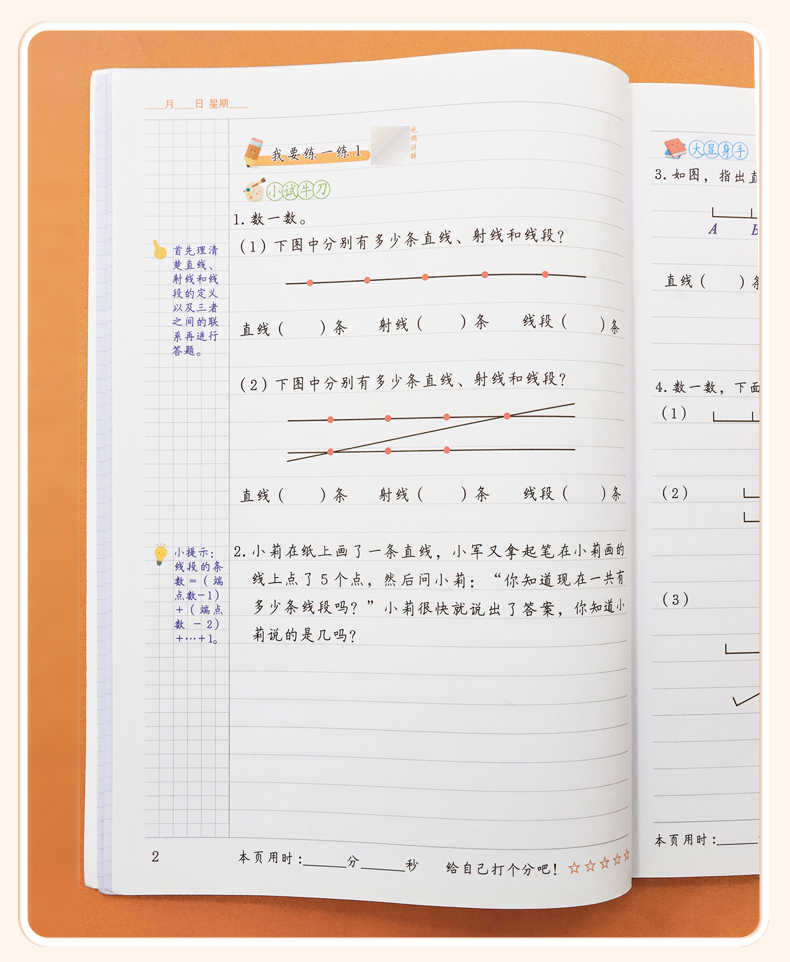 ____月____日 星期____
我要练一练1
视频讲解
小试牛刀
1.数一数。
(1)下图中分别有多少条直线、射线和线段？
直线(    )条    射线(    )条    线段(    )条
(2)下图中分别有多少条直线、射线和线段？
直线(    )条    射线(    )条    线段(    )条
2.小莉在纸上画了一条直线，小军又拿起笔在小莉画的
线上点了5个点，然后问小莉：“你知道现在一共有
多少条线段吗？”小莉很快就说出了答案，你知道小
莉说的是几吗？
首先理清
楚直线、
射线和线
段的定义
以及三者
之间的联
系再进行
答题。
小提示：
线段的条
数=(端
点数-1)
+(端点
数-2)
+…+1。
2
本页用时：______分______秒    给自己打个分吧！☆☆☆☆☆
大显身手
3.如图，指出直
A
直线(    )条
4.数一数，下面
(1)
(2)
(3)
本页用时：______